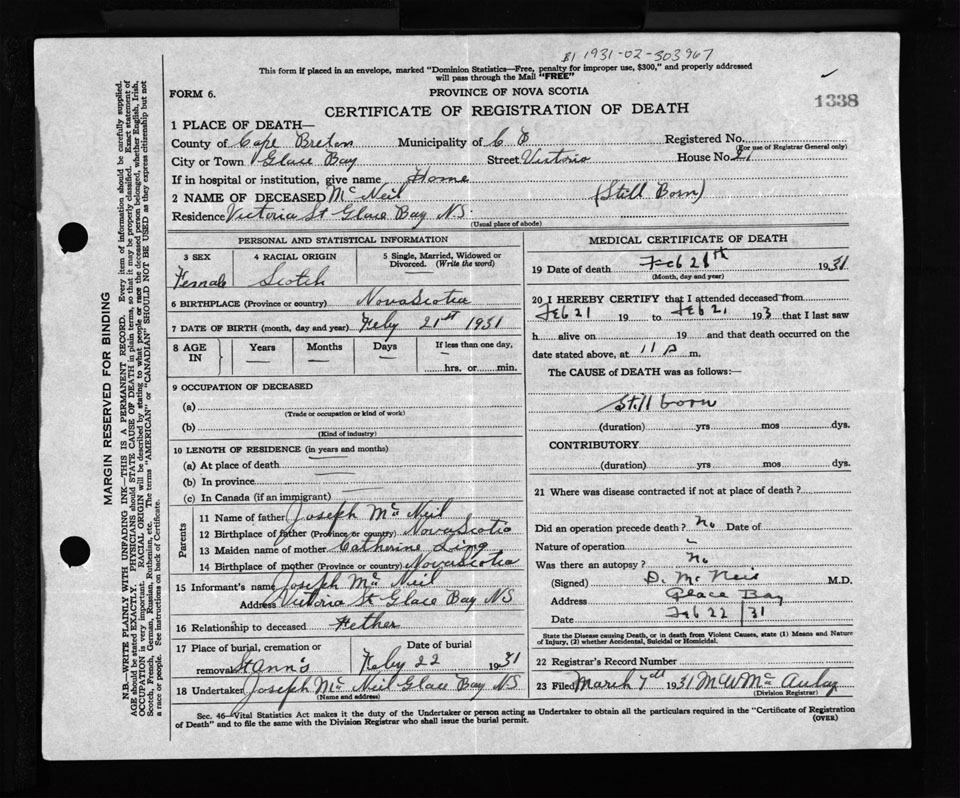 B1 1931-02-303967
This form if placed in an envelope, marked "Dominion Statistics—Free, penalty for improper use, $300," and properly addressed
will pass through the Mail "FREE"
FORM 6.
PROVINCE OF NOVA SCOTIA
1338
CERTIFICATE OF REGISTRATION OF DEATH
1 PLACE OF DEATH—
County of Cape Breton Municipality of C B Registered No.
(For use of Registrar General only)
City or Town Glace Bay Street Victoria House No. 21
If in hospital or institution, give name Home
2 NAME OF DECEASED Mc Neil (Still Born)
Residence Victoria St Glace Bay NS.
(Usual place of abode)
PERSONAL AND STATISTICAL INFORMATION
3 SEX 4 RACIAL ORIGIN 5 Single, Married, Widowed or
Divorced. (Write the word)
Female Scotch
6 BIRTHPLACE (Province or country) Nova Scotia
7 DATE OF BIRTH (month, day and year) Feby 21st 1931
8 AGE IN Years Months Days If less than one day,
hrs. or min.
9 OCCUPATION OF DECEASED
(a)
(Trade or occupation or kind of work)
(b)
(Kind of industry)
10 LENGTH OF RESIDENCE (in years and months)
(a) At place of death
(b) In province
(c) In Canada (if an immigrant)
Parents
11 Name of father Joseph Mc Neil
12 Birthplace of father (Province or country) Nova Scotia
13 Maiden name of mother Catherine
14 Birthplace of mother (Province or country) Nova Scotia
15 Informant's name Joseph Mc Neil
Address Victoria St Glace Bay NS
16 Relationship to deceased Fether
17 Place of burial, cremation or Date of burial
removal St Ann's Feby 22 1931
18 Undertaker Joseph Mc Neil Glace Bay NS
(Name and address)
MEDICAL CERTIFICATE OF DEATH
19 Date of death Feb 1931
(Month, day and year)
20 I HEREBY CERTIFY that I attended deceased from
Feb 21 19 to Feb 21 193 that I last saw
h alive on 19 and that death occurred on the
date stated above, at 11 p m.
The CAUSE of DEATH was as follows:—
Still born
(duration) yrs mos dys.
CONTRIBUTORY
(duration) yrs mos dys.
21 Where was disease contracted if not at place of death?
Did an operation precede death? No Date of
Nature of operation
Was there an autopsy? No
(Signed) D. Mc Neil M.D.
Address Glace Bay
Date Feb 22 / 31
State the Disease causing Death, or in death from Violent Causes, state (1) Means and Nature
of Injury, (2) whether Accidental, Suicidal or Homicidal.
22 Registrar's Record Number
23 Filed March 7th 1931 M W McAulay
(Division Registrar)
Sec. 46—Vital Statistics Act makes it the duty of the Undertaker or person acting as Undertaker to obtain all the particulars required in the "Certificate of Registration
of Death" and to file the same with the Division Registrar who shall issue the burial permit.
(OVER)
MARGIN RESERVED FOR BINDING
N.B.—WRITE PLAINLY WITH UNFADING INK—THIS IS A PERMANENT RECORD. Every item of information should be carefully supplied.
AGE should be stated EXACTLY. PHYSICIANS should STATE CAUSE OF DEATH in plain terms, so that it may be properly classified. Exact statement of
OCCUPATION is very important. RACIAL ORIGIN will be described by stating to what people or race the deceased person belonged, whether English, Irish,
Scotch, French, German, Russian, Ruthenian, etc. The terms "AMERICAN" or "CANADIAN" SHOULD NOT BE USED as they express citizenship but not
a race or people. See instructions on back of Certificate.